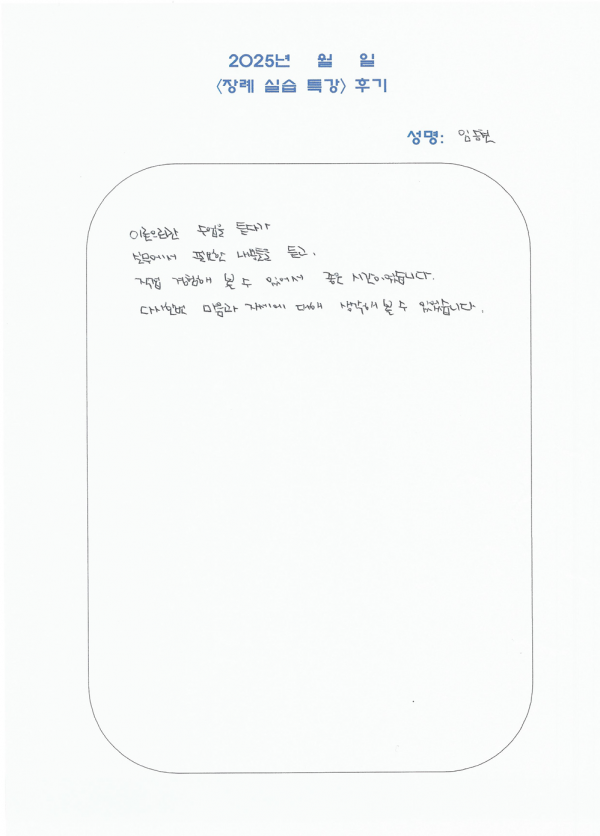 2025년 월 일
〈장례 실습 특강〉 후기
성명: 임
이론으로만 수업을 듣다가
실무에서 필요한 내용들을 듣고,
직접 경험해 볼 수 있어서 좋은 시간이었습니다.
다시한번 마음과 자세에 대해 생각해 볼 수 있었습니다.